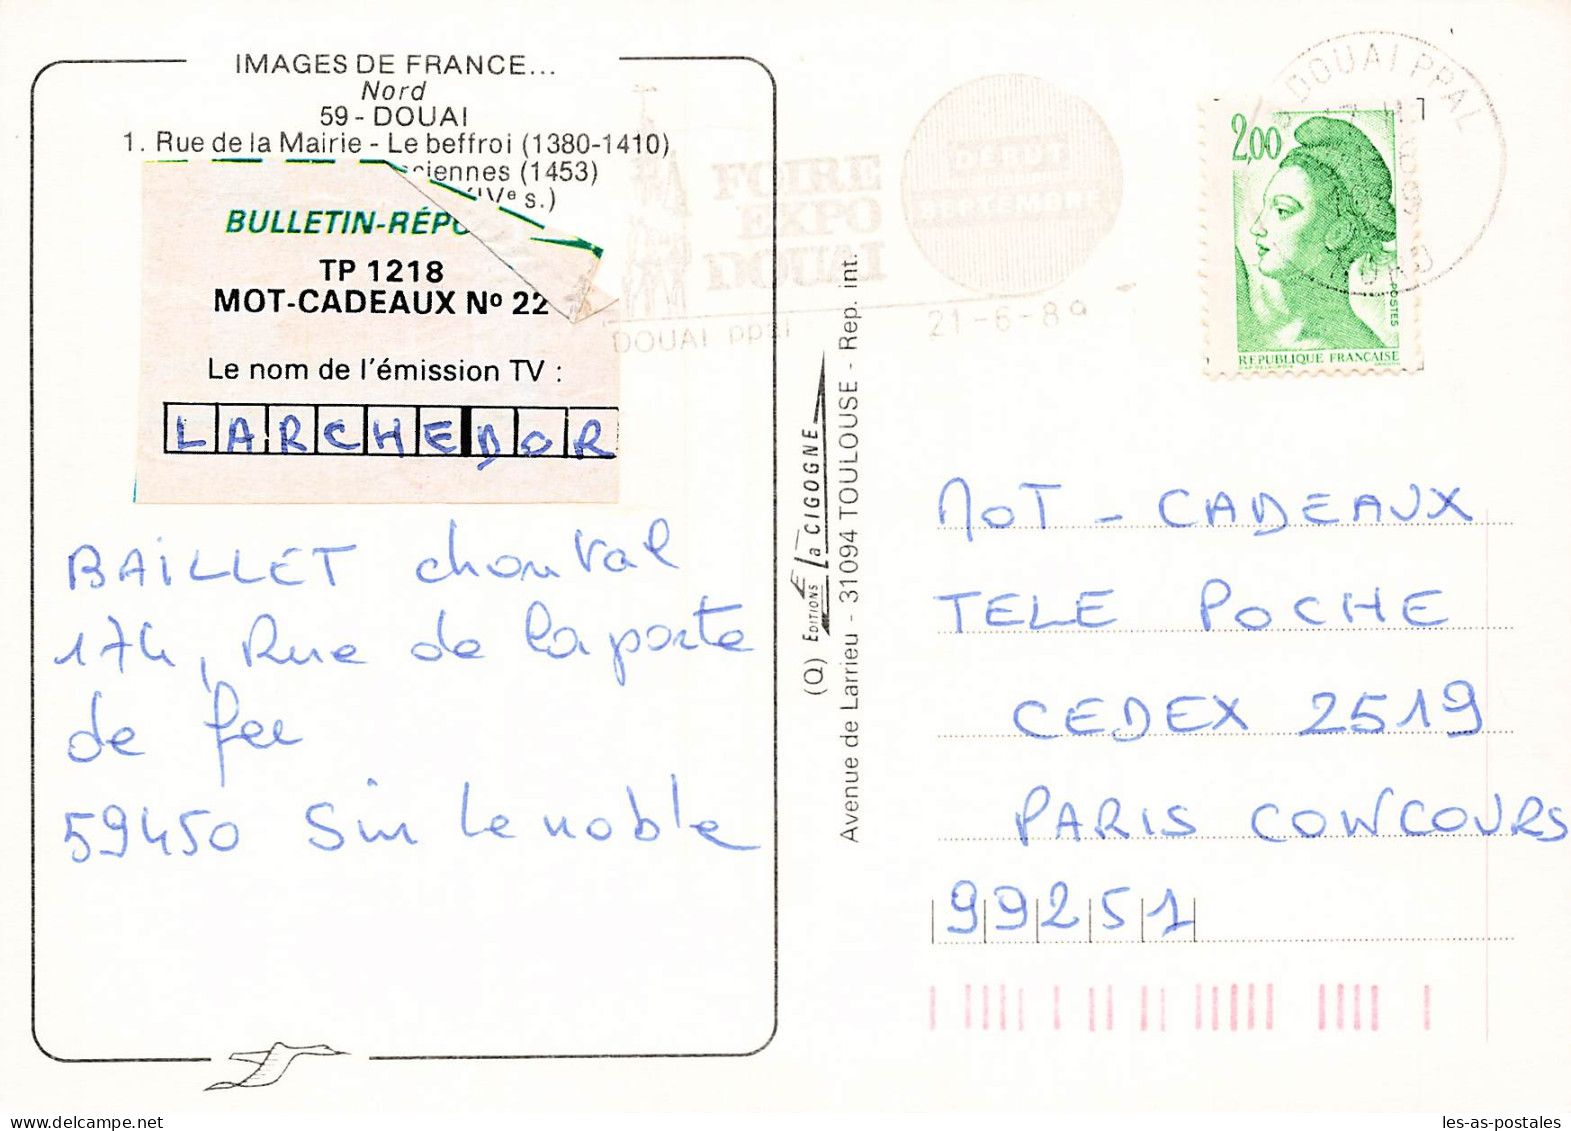 IMAGES DE FRANCE...
Nord
59 - DOUAI
1. Rue de la Mairie - Le beffroi (1380-1410)
ciennes (1453)
IVe s.)
BULLETIN-RÉPO
TP 1218
MOT-CADEAUX Nº 22
Le nom de l'émission TV :
LARCHEDOR
BAILLET chonval
174, Rue de la porte
de fer
59450 Sin le noble
FOIRE
EXPO
DOUAI
DÉBUT
SEPTEMBRE
DOUAI ppal
21-6-89
DOUAI PPAL
NORD
2,00
POSTES
REPUBLIQUE FRANÇAISE
(Q) EDITIONS La CIGOGNE
Avenue de Larrieu - 31094 TOULOUSE - Rep. int.
MOT - CADEAUX
TELE POCHE
CEDEX 2519
PARIS CONCOURS
99251
les-as-postales